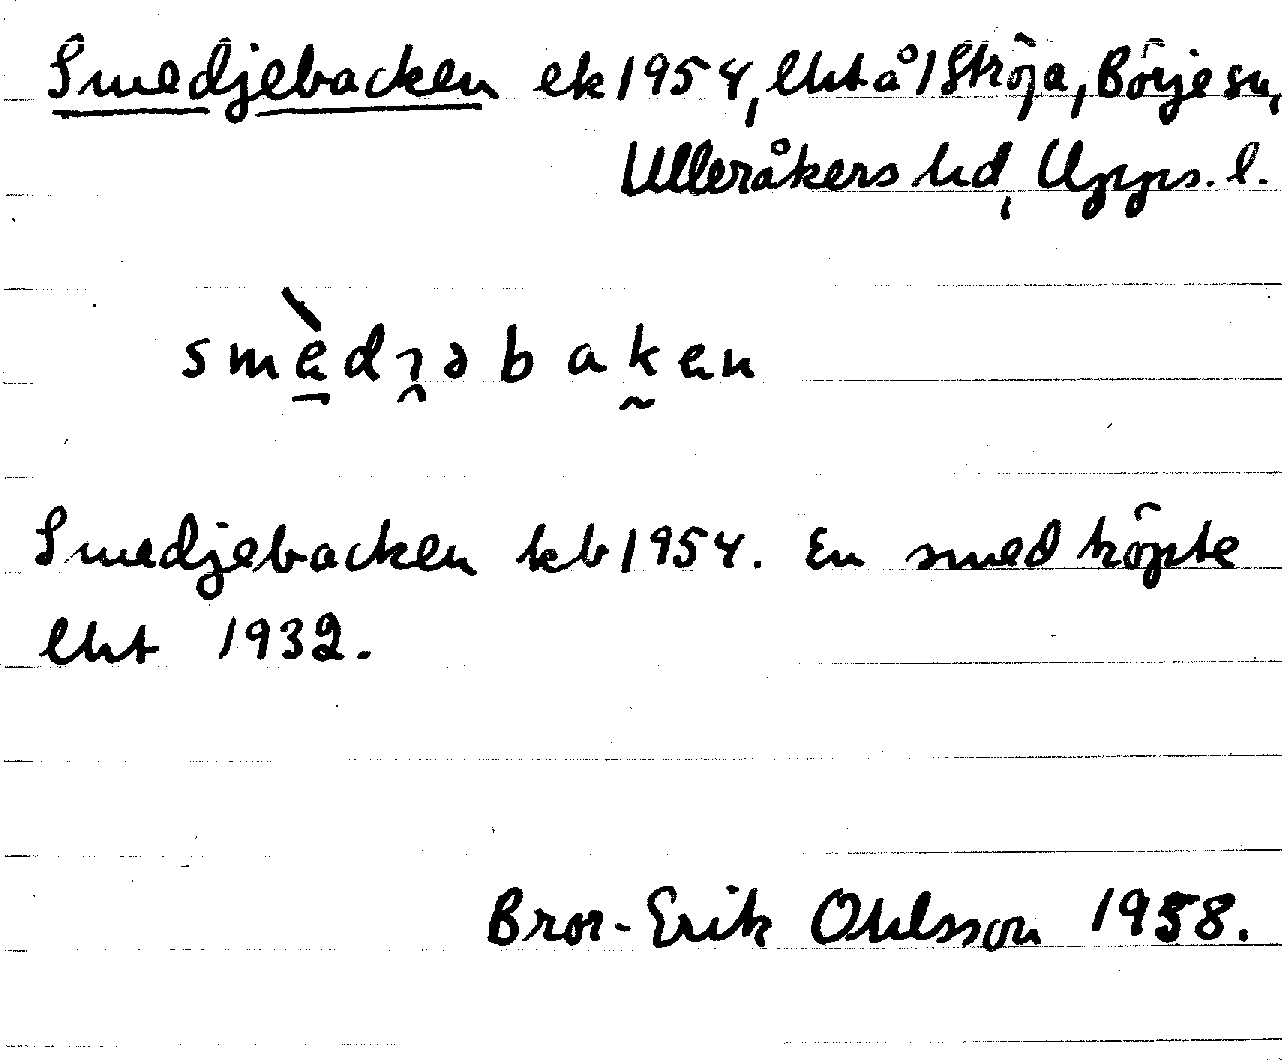 Smedjebacken ek 1954, lht å 1 Ströja, Börje sn,
Ulleråkers hd, Upps. l.
smèdȷəbaken
Smedjebacken kb 1954. En smed köpte
lht 1932.
Bror-Erik Ohlsson 1958.